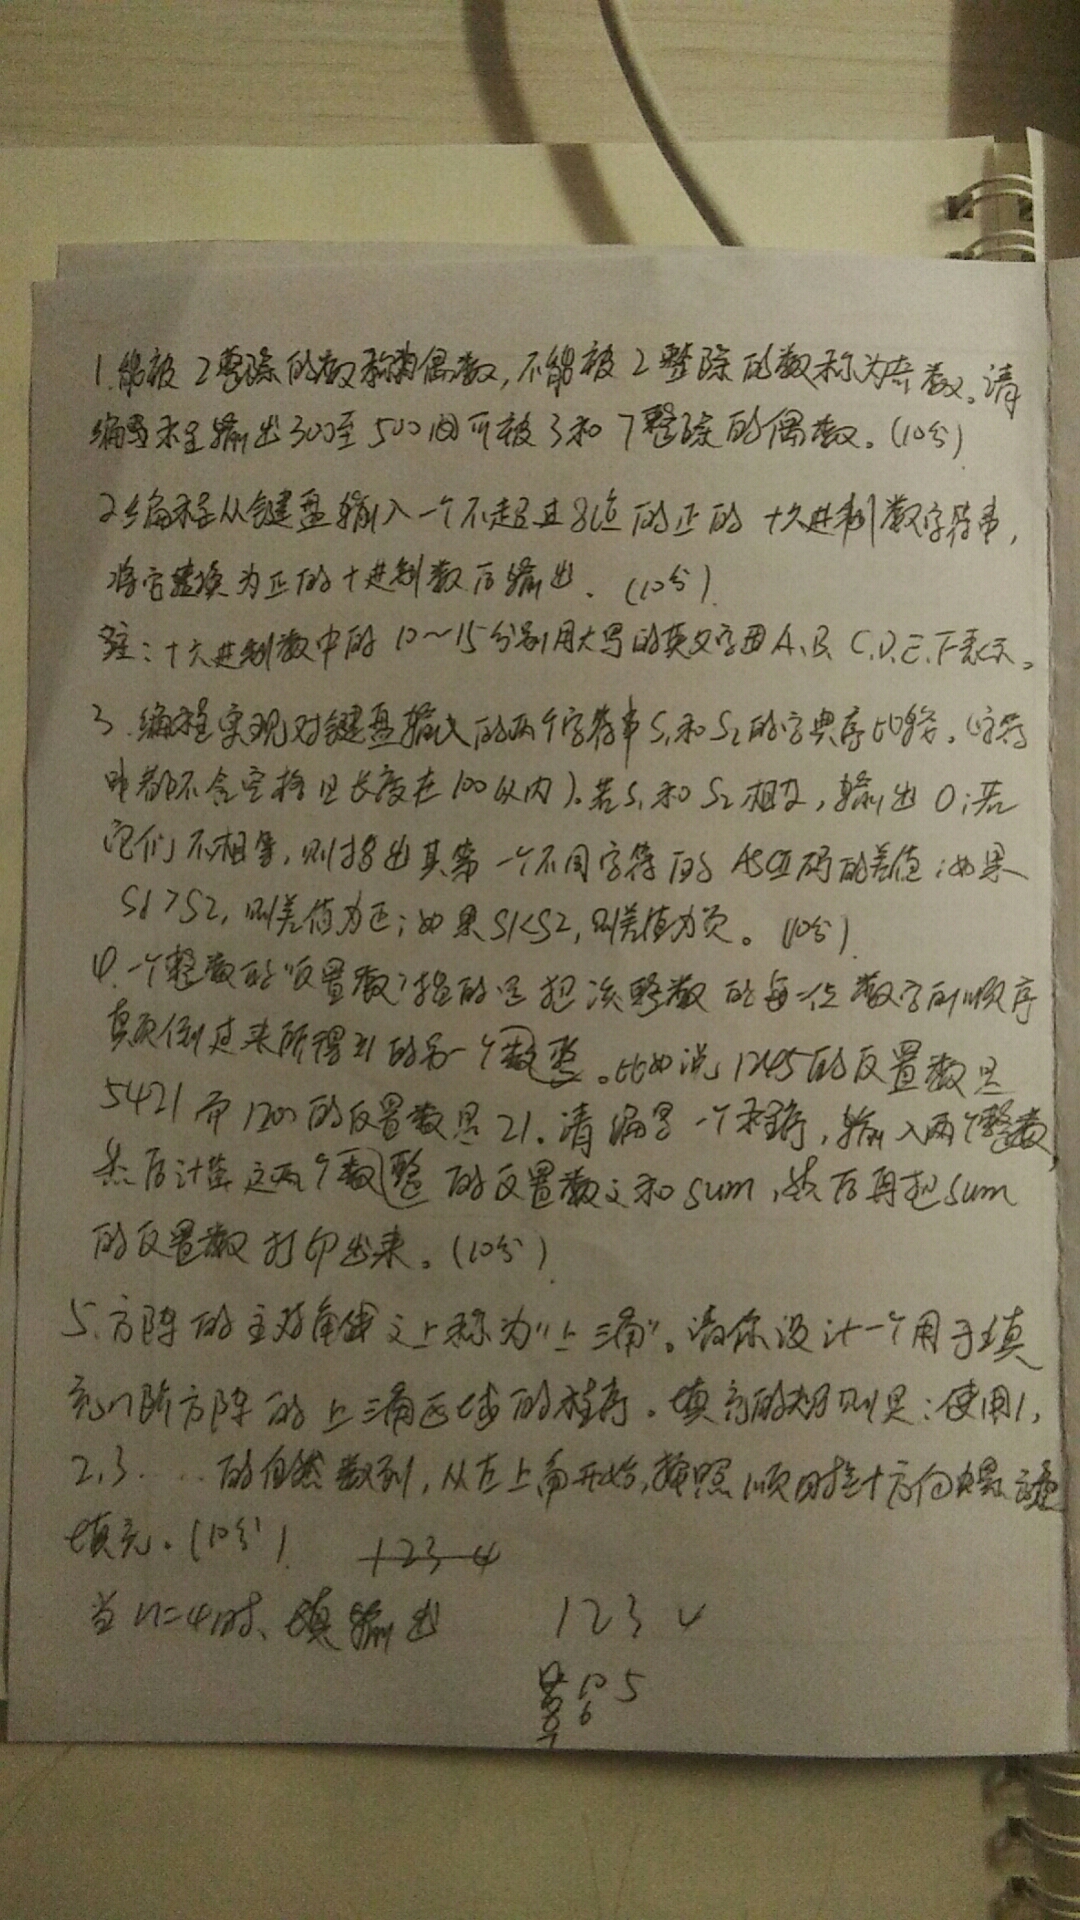 1.能被2整除的数称为偶数,不能被2整除的数称为奇数。请
编写程输出300至500间可被3和7整除的偶数。(10分)
2.编程从键盘输入一个不超过8位的正的十六进制数字符串,
将它转换为正的十进制数后输出.(10分).
注:十六进制数中的10~15分别用大写的英文字母A、B、C、D、E、F表示。
3.编程实现对键盘输入的两个字符串S1和S2的字典序比较。(字符
串都不含空格且长度在100以内).若S1和S2相等,输出0;若
它们不相等,则指出其第一个不同字符的ASCII码的差值;如果
S1>S2,则差值为正;如果S1<S2,则差值为负。(10分)
4.一个整数的"反置数"指的是把该整数的每一位数字的顺序
颠倒过来所得到的另一个数整。比如说,1245的反置数是
5421而1200的反置数是21.请编写一个程序,输入两个整数,
然后计算这两个数整的反置数之和sum,然后再把sum
的反置数打印出来。(10分)
5.方阵的主对角线之上称为"上三角"。请你设计一个用于填
充n阶方阵的上三角区域的程序。填充的规则是:使用1,
2,3.....的自然数列,从左上角开始,按照顺时针方向螺旋
填充。(10分)
1 2 3 4
当n=4时、输出
1 2 3 4
10 5
6